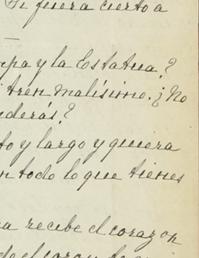 Si fuera cierto a
mpa y la Estatua?
tren malísimo. ¿No
derás?
to y largo y quiera
n todo lo que tienes
a recibe el corazon